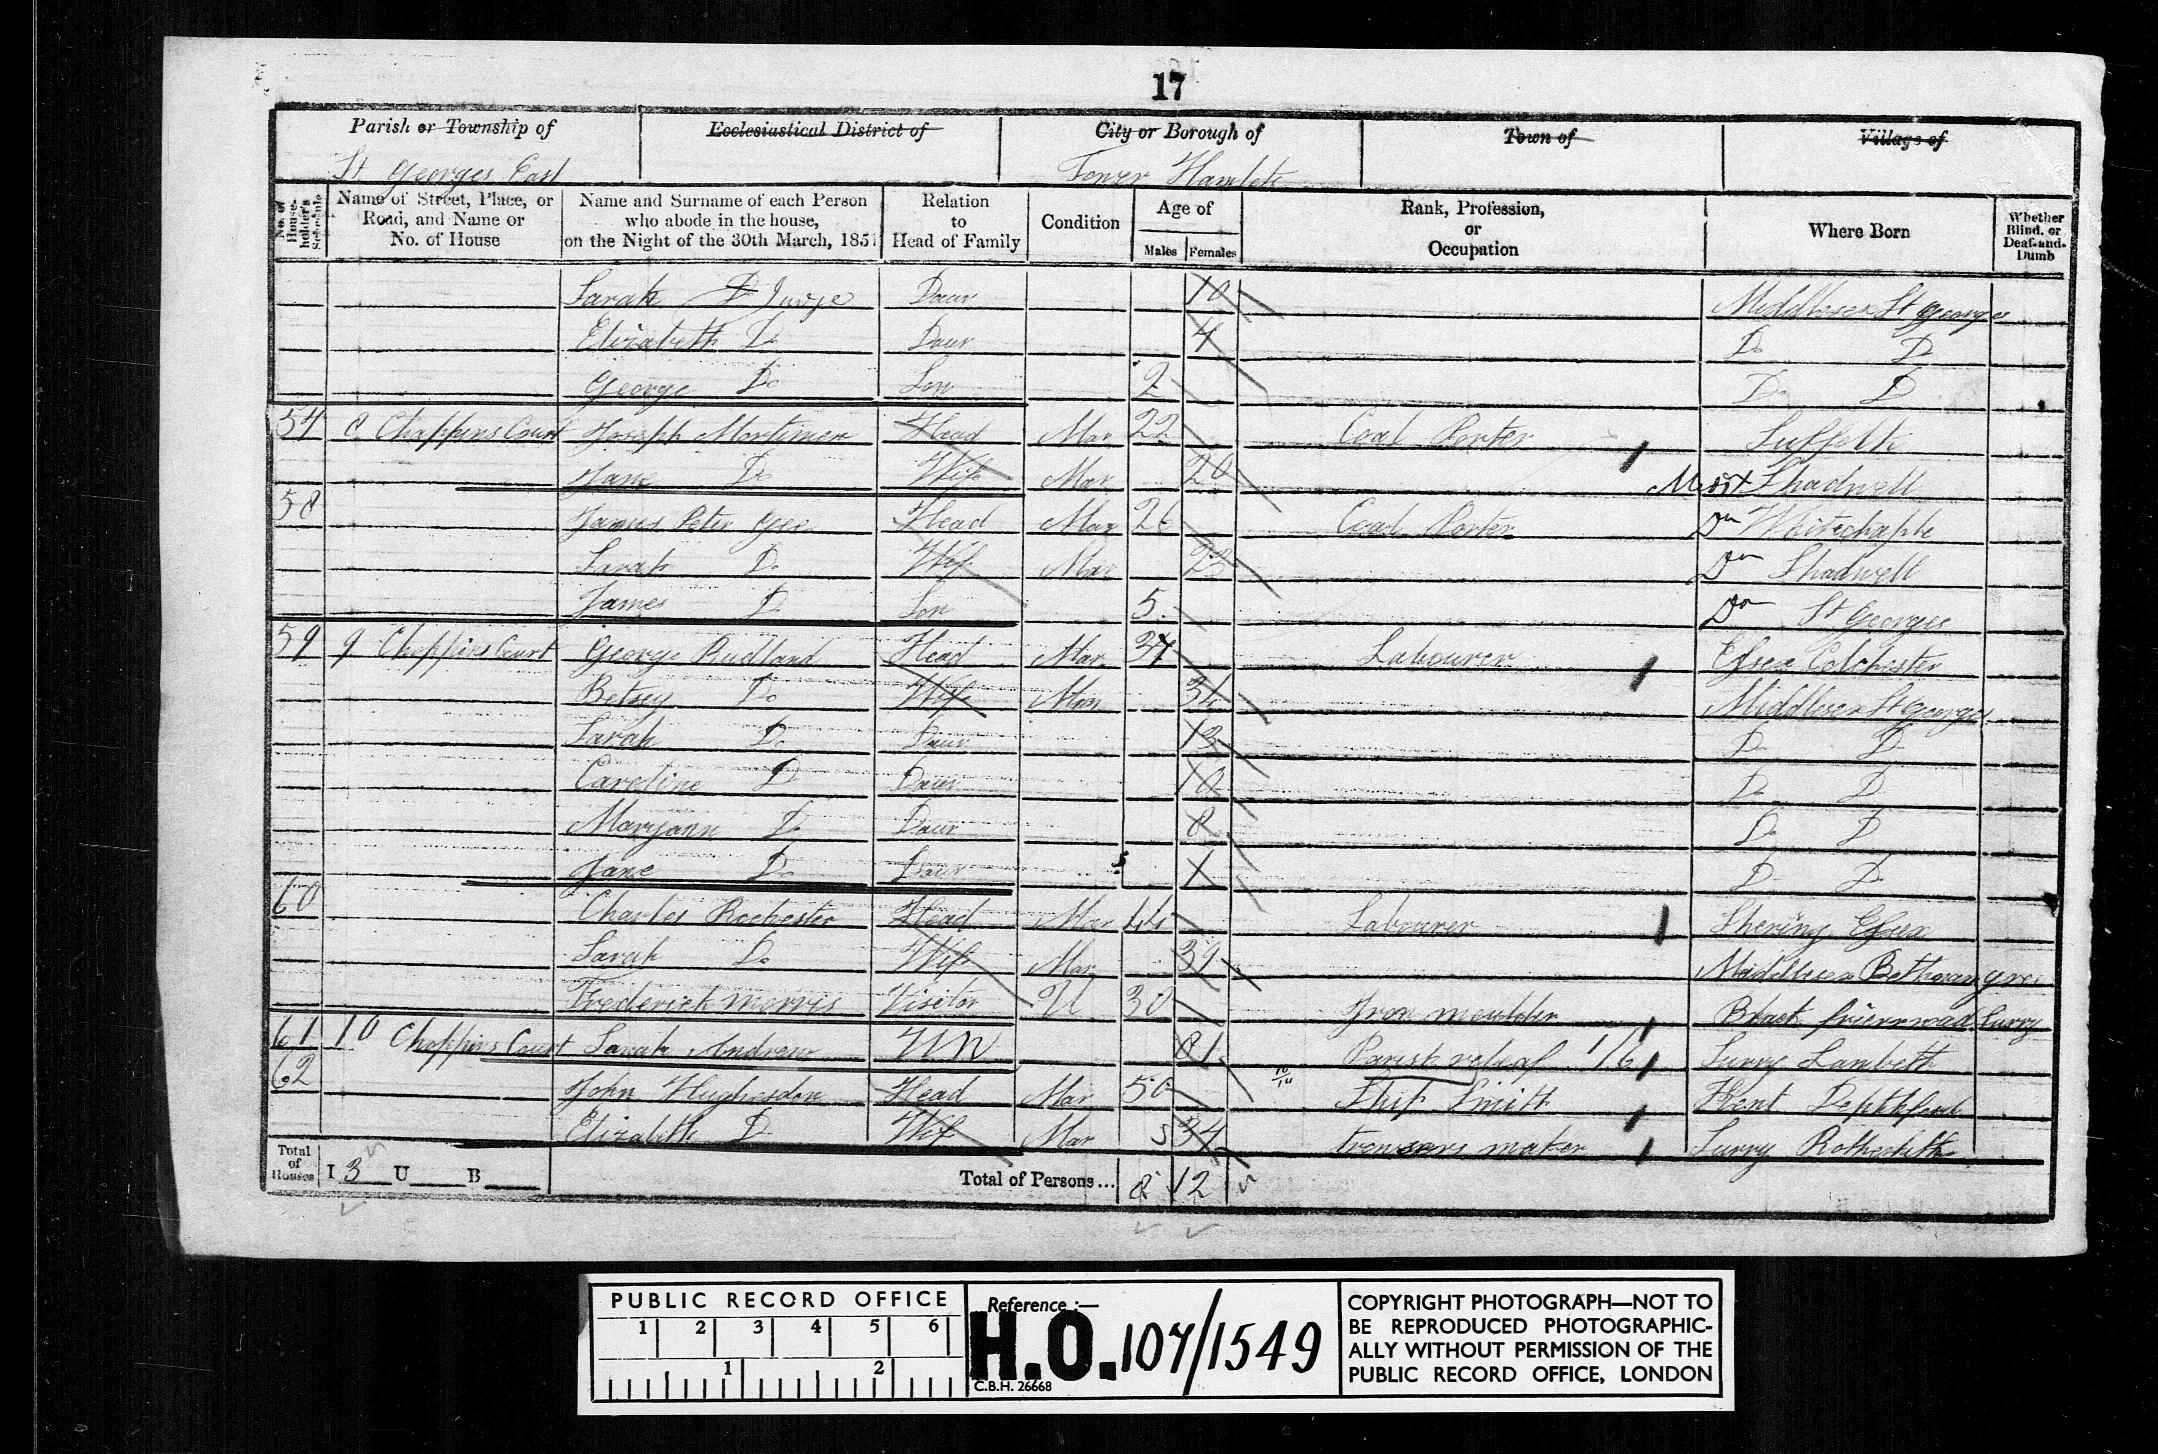 17
Parish or Township of Ecclesiastical District of City or Borough of Town of Village of
St Georges East Tower Hamlets
No. of House-holder's Schedule Name of Street, Place, or Road, and Name or No. of House Name and Surname of each Person who abode in the house, on the Night of the 30th March, 1851 Relation to Head of Family Condition Age of Males Females Rank, Profession, or Occupation Where Born Whether Blind, or Deaf-and-Dumb
Sarah Daur 10 Middlesex St Georges
Elizabeth Do Daur 4 Do Do
George Do Son 2 Do Do
57 8 Choppins Court Joseph Mortimer Head Mar 22 Coal Porter Suffolk
Jane Do Wife Mar 20 Midx Shadwell
58 James Peter Gee Head Mar 26 Coal Porter Do Whitechaple
Sarah Do Wife Mar 23 Do Shadwell
James Do Son 5 Do St Georges
59 9 Choppins Court George Rudland Head Mar 37 Labourer Essex Colchester
Betsey Do Wife Mar 36 Middlesex St Georges
Sarah Do Daur 13 Do Do
Caroline Do Daur 10 Do Do
Maryann Do Daur 8 Do Do
Jane Do Daur 1 Do Do
60 Charles Rochester Head Mar 44 Labourer Shering Essex
Sarah Do Wife Mar 39 Middlesex Bethnangree
Frederick morris Visitor U 30 Iron moulder Black frierroad Surry
61 10 Choppins Court Sarah Andrew 81 Parish relief 1/6 Surry Lambeth
62 John Hughesdon Head Mar 50 Ship Smith Kent Deptford
Elizabeth D Wif Mar 54 trowsers maker Surry Rotherhithe
Total of Houses I 3 U B Total of Persons... 8 12
PUBLIC RECORD OFFICE
1 2 3 4 5 6
1 2
Reference :—
H.O. 107/1549
C.B.H. 26668
COPYRIGHT PHOTOGRAPH—NOT TO
BE REPRODUCED PHOTOGRAPHIC-
ALLY WITHOUT PERMISSION OF THE
PUBLIC RECORD OFFICE, LONDON